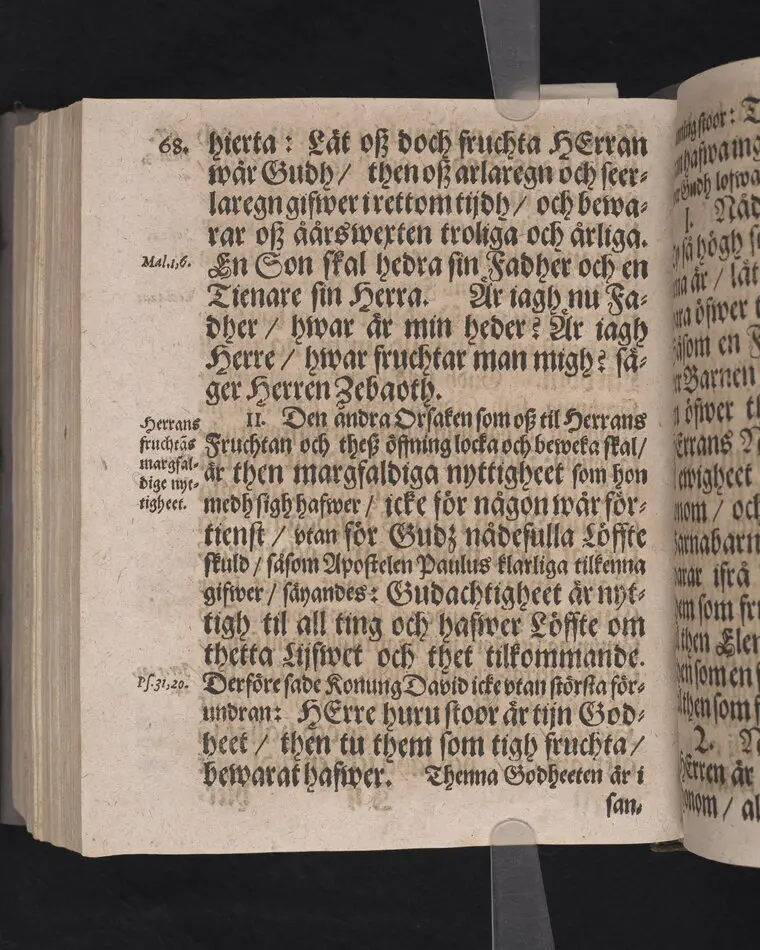 68. hierta: Låt oß doch fruchta HErran
wår Gudh / then oß arlaregn och seer-
laregn gifwer i rettom tijdh / och bewa-
rar oß åårswexten troliga och årliga.
Mal. 1, 6. En Son skal hedra sin Fadher och en
Tienare sin Herra. Är iagh nu Fa-
dher / hwar är min heder? Är iagh
Herre / hwar fruchtar man migh? sä-
ger Herren Zebaoth.
Herrans
fruchtãs
margfal-
dige nyt-
tigheet.
II. Den andra Orsaken som oß til Herrans
Fruchtan och theß öffning locka och beweka skal /
är then margfaldiga nyttigheet som hon
medh sigh hafwer / icke för någon wår för-
tienst / vtan för Gudz nådefulla Löffte
skuld / såsom Apostelen Paulus klarliga tilkenna
gifwer / säyandes: Gudachtigheet är nyt-
tigh til all ting och hafwer Löffte om
thetta Lijfwet och thet tilkommande.
Ps. 31, 20. Derföre sade Konung David icke vtan största för-
undran: HErre huru stoor är tijn God-
heet / then tu them som tigh fruchta /
bewarat hafwer. Thenna Godheeten är i
san-
ning stoor:
I. Nåd
som en F
Barnen
öfwer t
ewigheet
nom / och
arnabarn
ifrå
som fru
then Elen
som en
then som f
2.
HErren är
honom / al